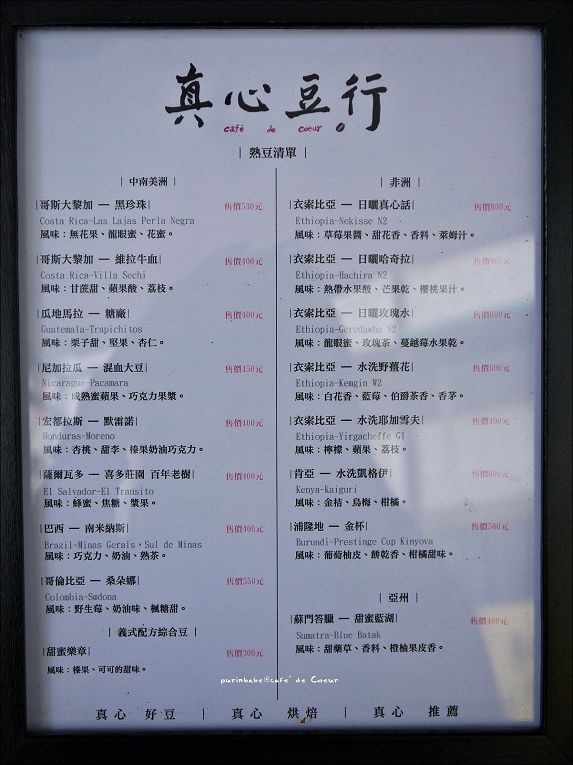 真心豆行
café de coeur
| 熟豆清單 |
| 中南美洲 |
|哥斯大黎加 — 黑珍珠| 售價530元
Costa Rica-Las Lajas Perla Negra
風味：無花果、龍眼蜜、花蜜。
|哥斯大黎加 — 維拉牛血| 售價400元
Costa Rica-Villa Sechi
風味：甘蔗甜、蘋果酸、荔枝。
|瓜地馬拉 — 糖廠| 售價400元
Guatemala-Trapichitos
風味：栗子甜、堅果、杏仁。
|尼加拉瓜 — 混血大豆| 售價450元
Nicaragua-Pacamara
風味：成熟蜜蘋果、巧克力果漿。
|宏都拉斯 — 默雷諾| 售價400元
Honduras-Moreno
風味：杏桃、甜李、榛果奶油巧克力。
|薩爾瓦多 — 喜多莊園 百年老樹| 售價400元
El Salvador-El Transito
風味：蜂蜜、焦糖、漿果。
|巴西 — 南米納斯| 售價400元
Brazil-Minas Gerais，Sul de Minas
風味：巧克力、奶油、熟茶。
|哥倫比亞 — 桑朵娜| 售價550元
Colombia-Smdona
風味：野生莓、奶油味、楓糖甜。
| 義式配方綜合豆 |
|甜蜜樂章| 售價300元
風味：榛果、可可的甜味。
| 非洲 |
|衣索比亞 — 日曬真心話| 售價800元
Ethiopia-Nekisse N2
風味：草莓果醬、甜花香、香料、萊姆汁。
|衣索比亞 — 日曬哈奇拉| 售價600元
Ethiopia-Hachira N2
風味：熱帶水果酸、芒果乾、櫻桃果汁。
|衣索比亞 — 日曬玫瑰水| 售價600元
Ethiopia-Geredawha N2
風味：龍眼蜜、玫瑰茶、蔓越莓水果乾。
|衣索比亞 — 水洗野薑花| 售價600元
Ethiopia-Kemgin W2
風味：白花香、藍莓、伯爵茶香、香茅。
|衣索比亞 — 水洗耶加雪夫| 售價400元
Ethiopia-Yirgacheffe G1
風味：檸檬、蘋果、荔枝。
|肯亞 — 水洗凱格伊| 售價600元
Kenya-Kaiguri
風味：金桔、烏梅、柑橘。
|浦隆地 — 金杯| 售價580元
Burundi-Prestinge Cup Kinyova
風味：葡萄柚皮、餅乾香、柑橘甜味。
| 亞州 |
|蘇門答臘 — 甜蜜藍湖| 售價400元
Sumatra-Blue Batak
風味：甜藥草、香料、橙柚果皮香。
purinbabe@café de Coeur
真心 好豆 | 真心 烘焙 | 真心 推薦